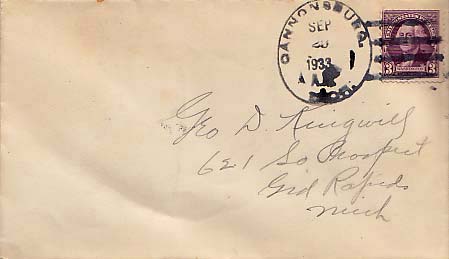 CANNONSBURG.
SEP
1933
A
3 3
Geo D. Kingwill
621 So Prospect
Grd Rapids
Mich